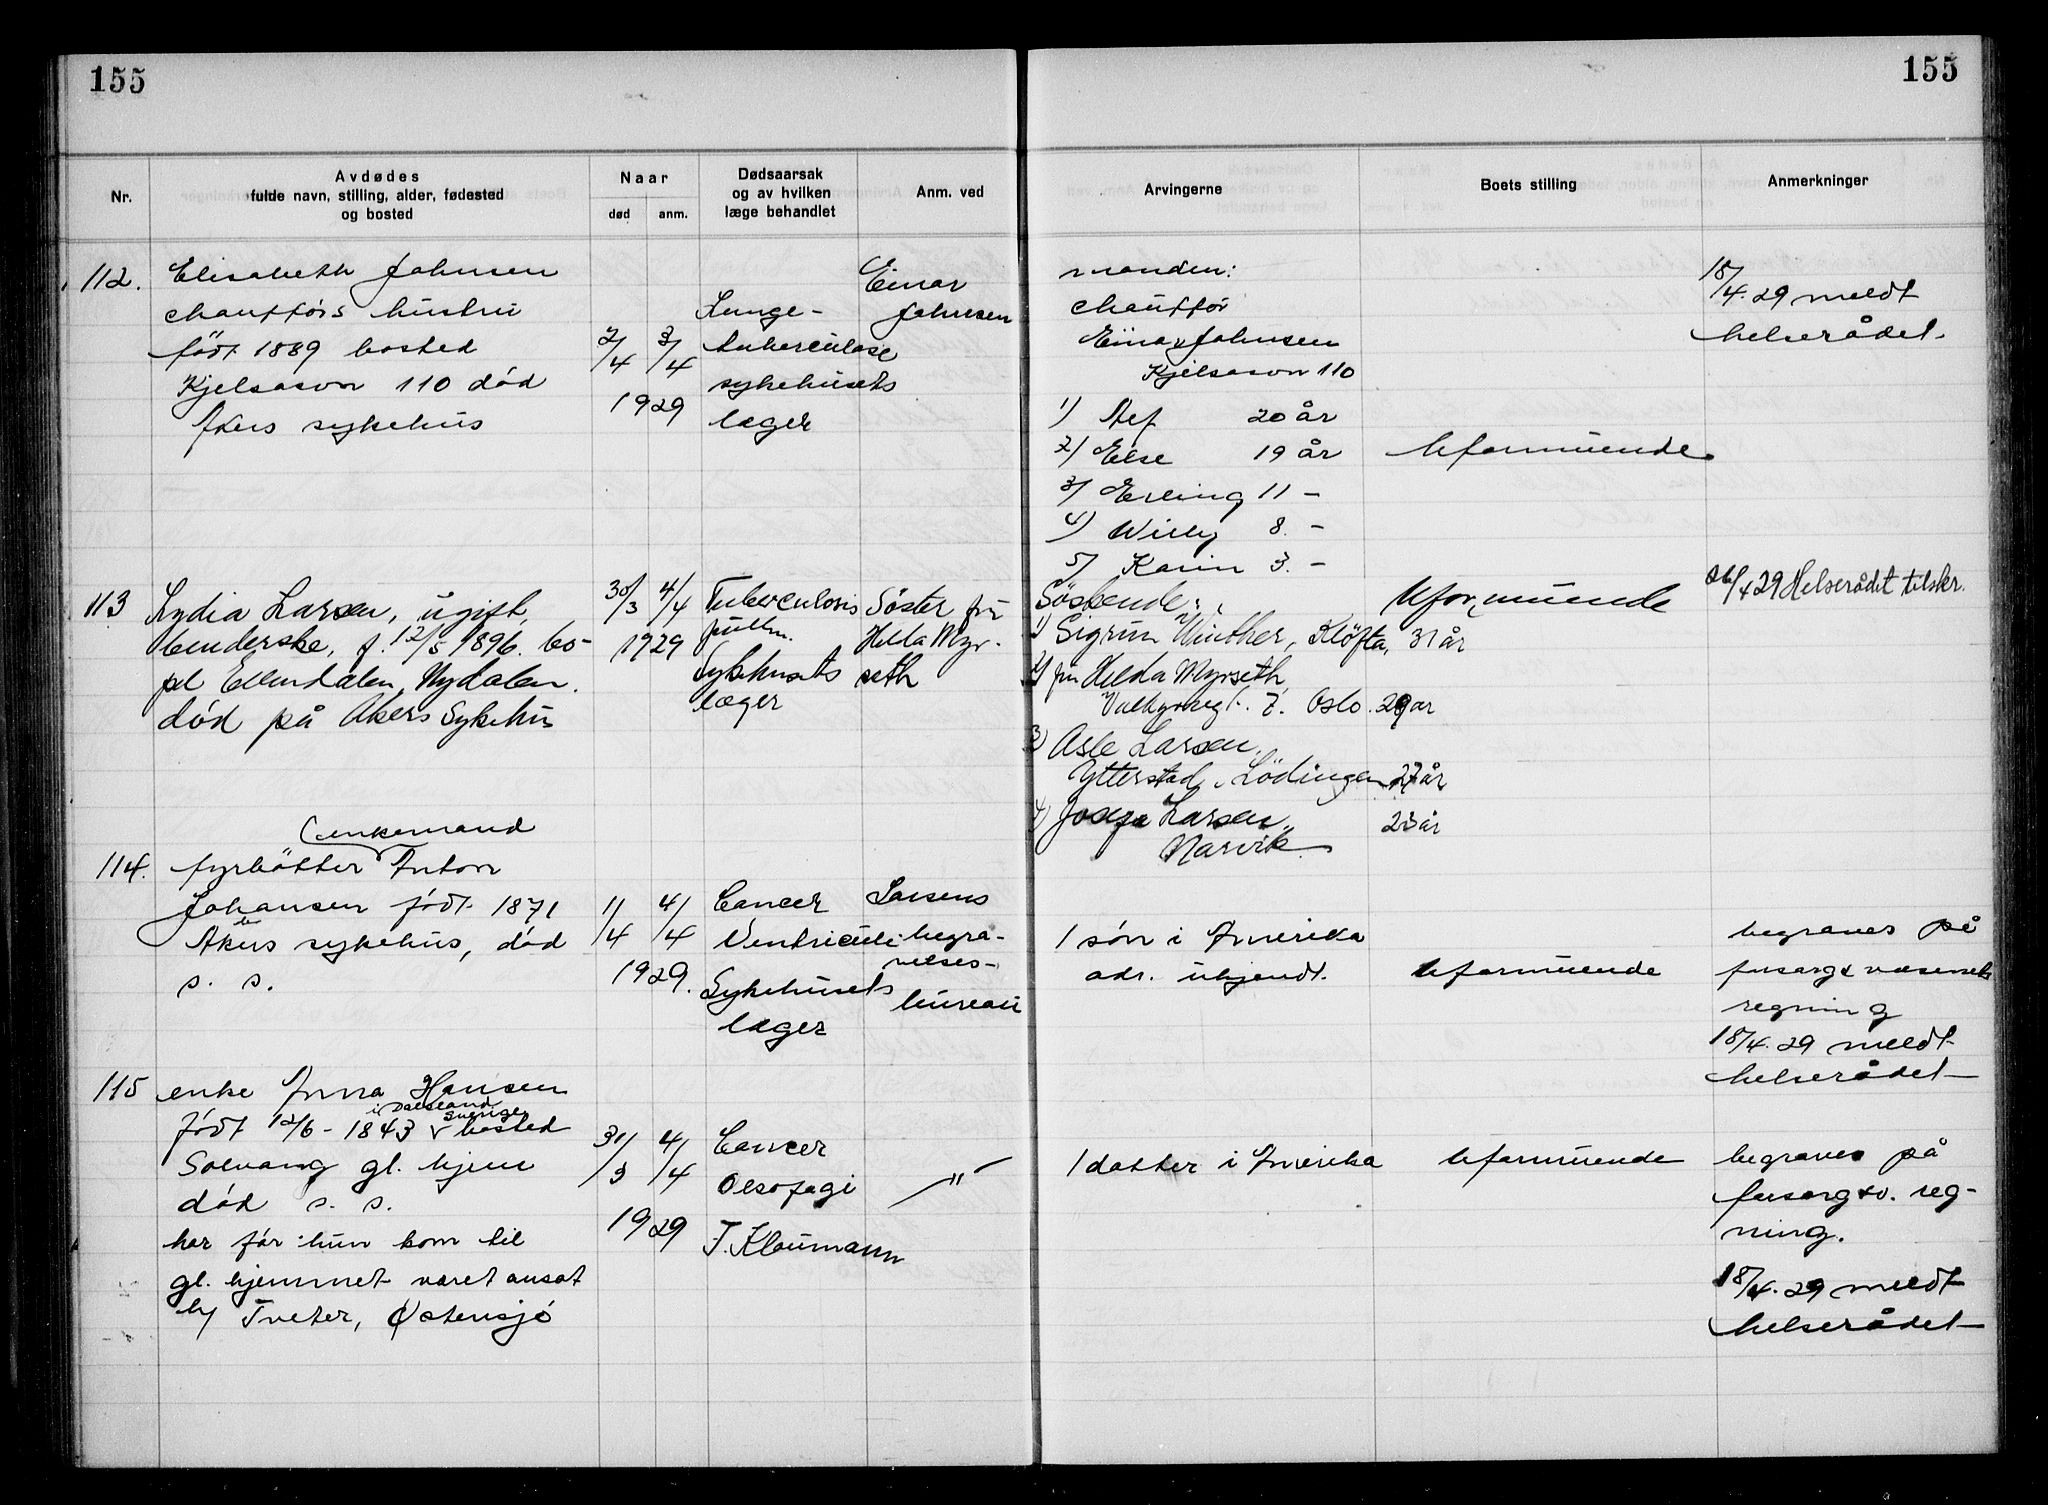 155
155
Nr.
Avdødes
fulde navn, stilling, alder, fødested
og bosted
Naar
død
anm.
Dødsaarsak
og av hvilken
læge behandlet
Anm. ved
Arvingerne
Boets stilling
Anmerkninger
112.
Elisabeth Johnsen
chaufførs hustru
født 1889 bosted
Kjelsåsvn 110 død
Akers sykehus
2/4
3/4
1929
Lunge-
tuberculose
sykehusets
læger
Einar
Johnsen
manden:
chauffør
Einar Johnsen
Kjelsåsvn 110
1) Alf 20 år
2) Else 19 år
3) Erling 11 -
4) Willy 8. -
5) Karin 3. -
Uformuende
18/4. 29 meldt
helserådet.
113
Lydia Larsen, ugift,
f. 12/5 1896. bo-
pl Ellendalen, Nydalen.
død på Akers Sykehus
30/3
4/4
1929
Tuberculosis
pullm.
Sykehusets
læger
Søster fru
Helda Myr-
seth
Søskende:
1) Sigrun Winther, Kløfta, 31 år
2) fru Helda Myrseth
7. Oslo. 29 år
3) Asle Larsen,
Ytterstad, Lödingen 27 år
4) Larsen, 23 år
Narvik
Uformuende
29 Helserådet tilskr.
114.
enkemand
fyrbøtter Anton
Johansen født 1871
Akers sykehus, død
s. s.
1/4
4/4
1929.
Cancer
Ventriculi
Sykehusets
læger
Larsens
begra-
velses-
bureau
1 søn i Amerika
adr. ukjendt.
Uformuende
begraves på
forsorgsvæsenets
regning
18/4. 29 meldt
helserådet
115
enke Anna Hansen
i Dalsland
Sverige
født 12/6 - 1843 bosted
Solvang gl. hjem
død s. s.
har før hun kom til
gl. hjemmet været ansat
h/ Tveter, Østensjö
31/3
4/4
1929
Cancer
Oesofagi
T. Kloumann
"
1 datter i Amerika
Uformuende
begraves på
forsorgsv. reg-
ning.
18/4. 29 meldt
helserådet